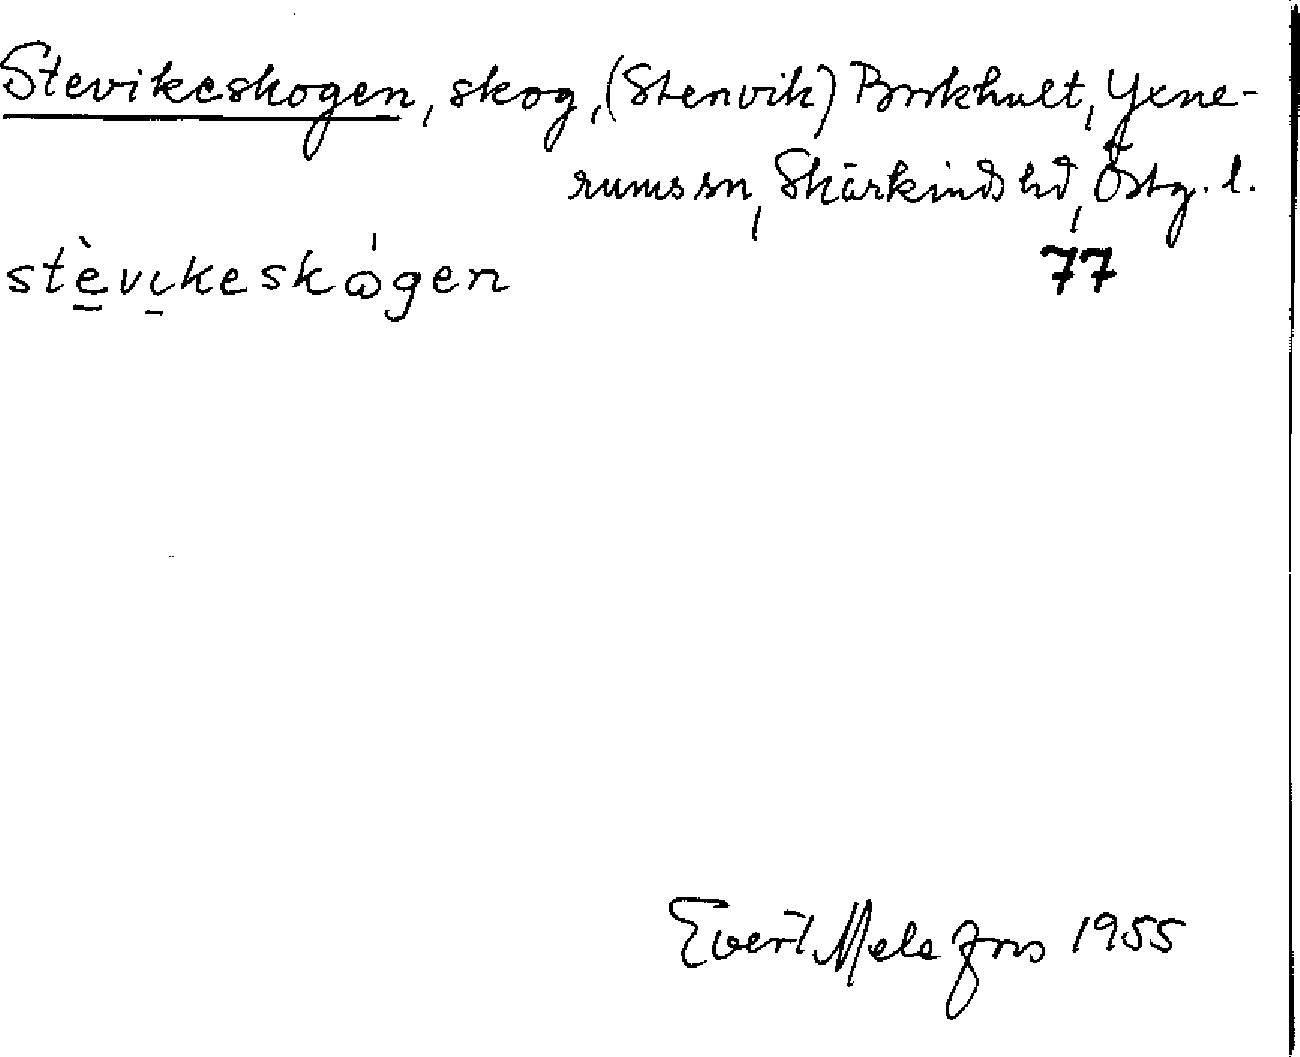 Stevikeskogen, skog, (Stenvik) Brokhult, Yxne-
rums sn, Skärkinds hd, Östg. l.
stèvikeskógen 77
Evert Melefors 1955